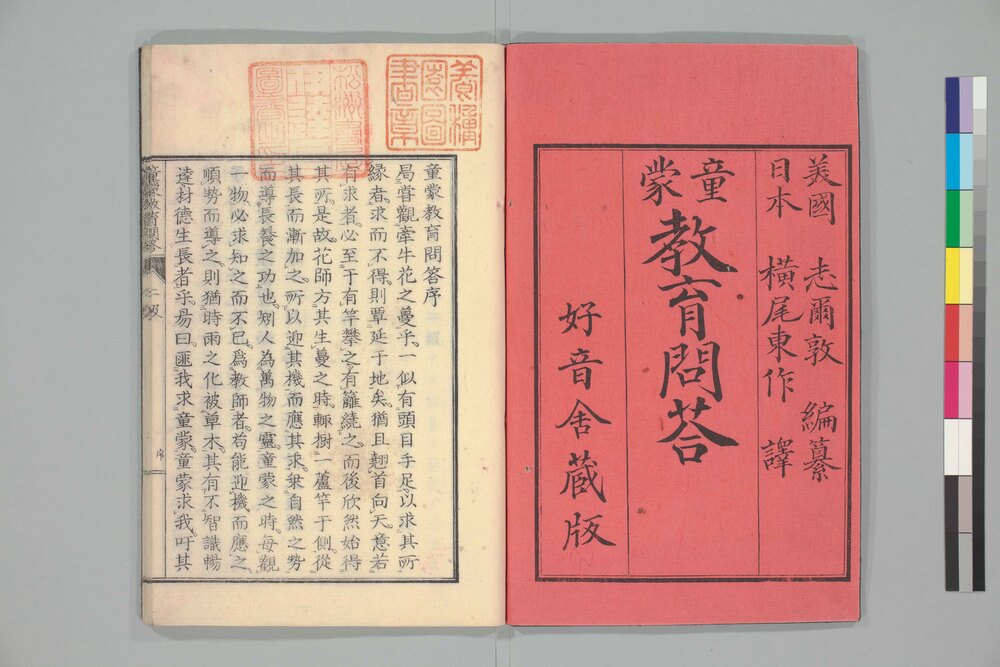 美國 志爾敦 編纂
日本 横尾東作 譯
童蒙教育問荅
好音舎蔵版
童蒙教育問答序
曷嘗觀牽牛花之蔓乎一似有頭目手足以求其所
縁者求而不得則蕈延于地矣猶且翹首向天意若
有求者必至于有竿攀之有籬繞之而後欣然始得
其所是故花師方其生蔓之時輙樹一蘆竿于側從
其長而漸加之所以迎其機而應其求衆自然之勢
而導長養之功也矧人為萬物之靈童蒙之時毎觀
一物必求知之而不已爲教師者苟能迎機而應之
順勢而導之則猶時雨之化被草木其有不智識暢
達材德生長者乎易曰匪我求童蒙童蒙求我吁其
序
養積園圖書章